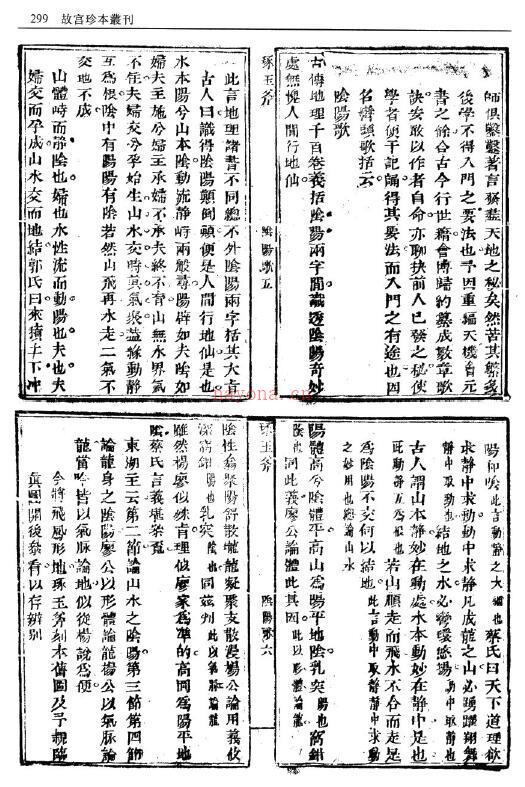 299 故宫珍本叢刊
師俱鑿鑿著言發蓋天地之秘矣然苦其繁多
後學不得入門之要法也予因重編天機會元
書之餘合古今行世籍會博歸約纂成數章歌
訣妄敢以作者自命亦聊抉前人已發之秘使
學者便于記誦得其要法而入門之有途也因
名弁頭歌括云
陰陽歌
古傳地理千百卷義括陰陽兩字間識透陰陽奇妙
處無愧人間行地仙
琢玉斧
陰陽歌五
此言地理諸書不同總不外陰陽兩字括其大旨
古人曰識得陰陽顛倒顛便是人間行地仙是也
水本陽兮山本陰動流靜峙兩般尋陽辟如夫陰如
婦夫主施兮婦主承婦不承夫終不育山無水界氣
不住夫婦交兮孕始生山水交時眞氣聚蓋緣動靜
互為根陰中有陽陽有陰若然山飛再水走二氣不
交地不成
山體峙而靜陰也婦也水性流而動陽也夫也夫
婦交而孕成山水交而地結郭氏曰來積止下冲
陽和陰此言動靜之大 蔡氏曰天下道理欲
求靜中求動動中求靜凡成龍之山必踴躍翔舞
靜中取動也 結地之水必彎環悠揚 動中取靜也
古人謂山本靜妙在動處水本動妙在靜中是也
此動靜互為根也 若山順走而飛水不合而走是
為陰陽不交何以結地 此言動中取靜靜中取動
之妙用也 論山水
陽體高兮陰體平高山為陽平地陰乳突 陽也 窩鉗
陰也 同此義廖公論體此其因 此以形體論
琢玉斧
陰陽歌六
陰性翕聚陽舒散龍龍凝聚支散漫楊公論用義攸
深窩鉗 陽也 乳突 陰也 同茲判 此以氣脉論
雖然楊廖似殊肯理似廖家為準的高岡為陽平地
陰蔡氏言義堪叅覔
東湖王云第二節論山水之陰陽第三節第四節
論龍身之陰陽廖公以形體論龍楊公以氣脉論
龍當時皆以氣脉論地似從楊說為便
今將飛鳳形地琢玉斧刻本舊圖及予親臨
真圖開後叅看以存辨別
nayona.cn